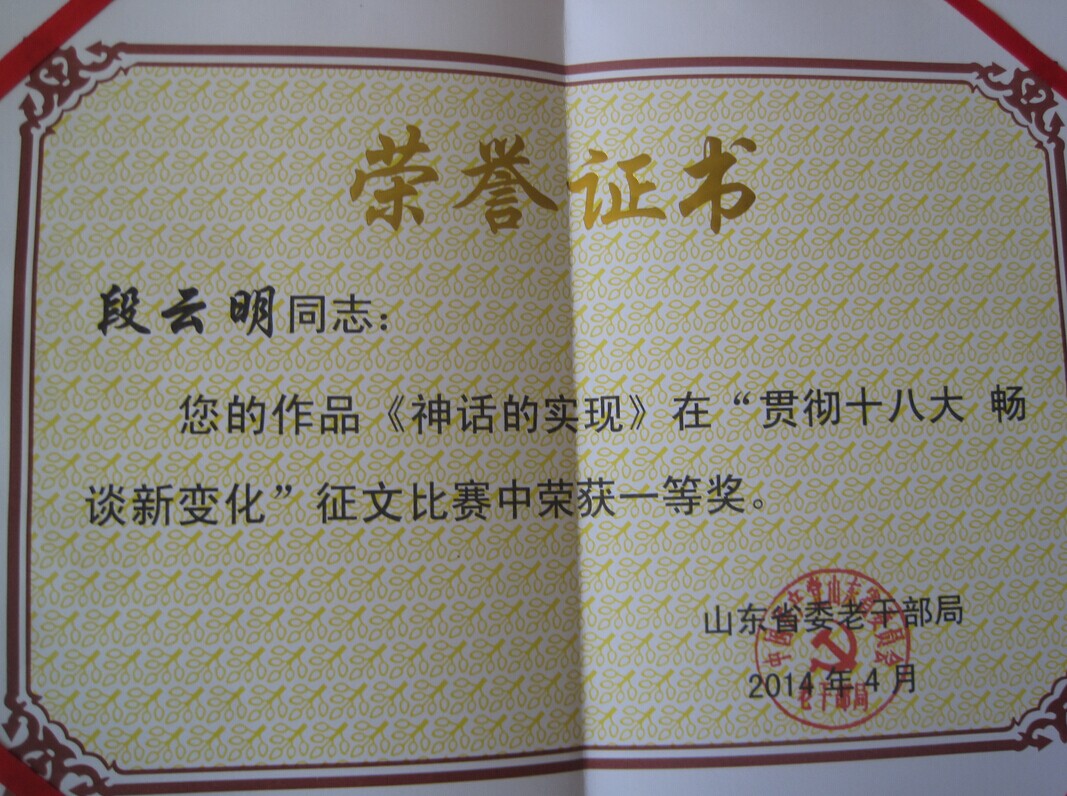 荣誉证书
段云明同志：
您的作品《神话的实现》在“贯彻十八大 畅
谈新变化”征文比赛中荣获一等奖。
山东省委老干部局
2014年4月
中国共产党山东省委员会
老干部局